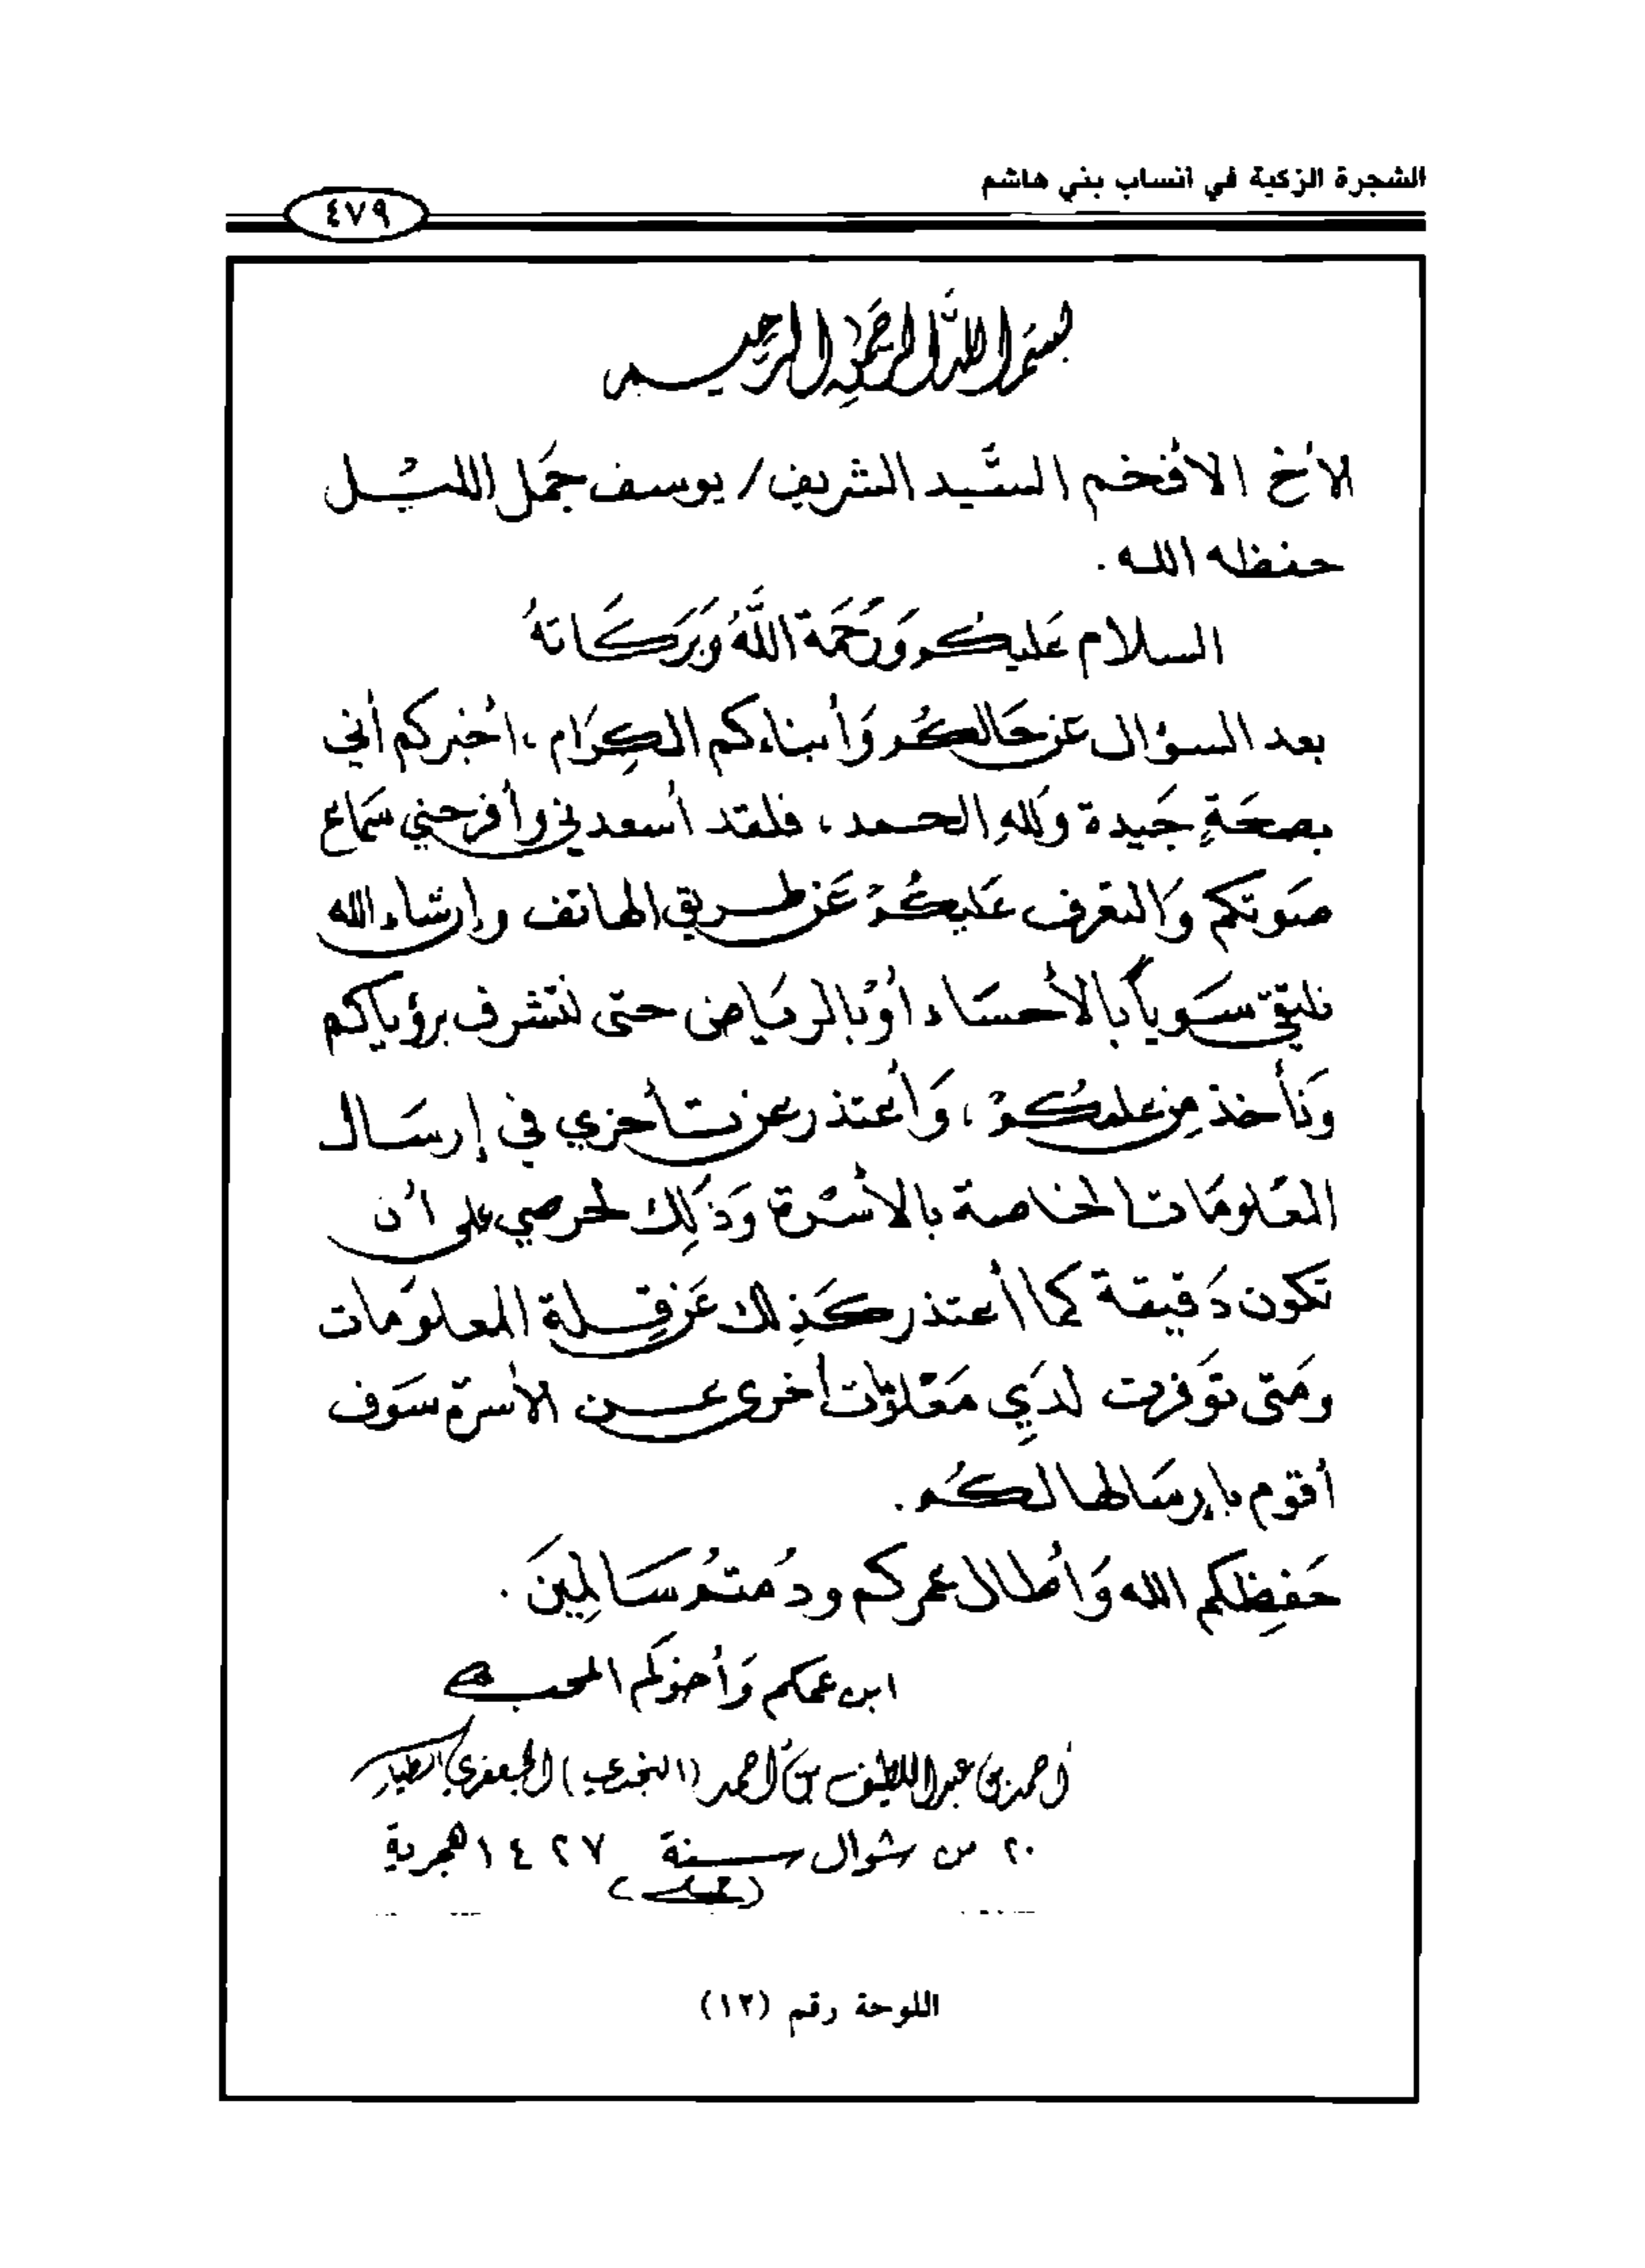 الشجرة الزكية في انساب بني هاشم
٤٧٩
بسم الله الرحمن الرحيم
لأخ الأفخم السَّيد الشريف / يوسف جمَل الليْل
حفظه الله .
السلام عَليكم وَرَحمَة اللَّهُ وَبَرَكَاتهُ
بعد السؤال عَن حَالكُم وَأبناءكم الكِرَام ، اخبركم أني
بصحَةٍ جَيدة وَللهِ الحمد ، فلقد أسعدني وأفرحني سَماع
صَوتكم وَالتعَرف عَليكُمْ عَن طريق الهاتف وإن شاء الله
نلتقي سَوياً بالأحسَاء أوْ بالريَاض حتى نتشرف برؤياكم
وَنأخذ مِن علمكُمْ ، وَأعتذر عن تأخري في إرسَال
المعْلومَات الخاصة بالأسْرة وَذَلِك لحرصي على أن
تكون دَقيقة كما أعتذر كَذلك عَن قِلة المعلومَات
ومَتى توَفرت لدَي مَعْلومَات أخرى عن الأسرة سَوف
أقوم بإرسَالها لكُم .
حَفِظكم الله وَأطال عمركم ودُمتُم سَالمِينَ .
ابن عمكم وَأخوكم المحب
أحمد بن عبد اللطيف بن أحمد (النجدي) الجعفري الطيار
٢٠ من شوال سنة ١٤٢٧ هجرية
اللوحة رقم (١٣)